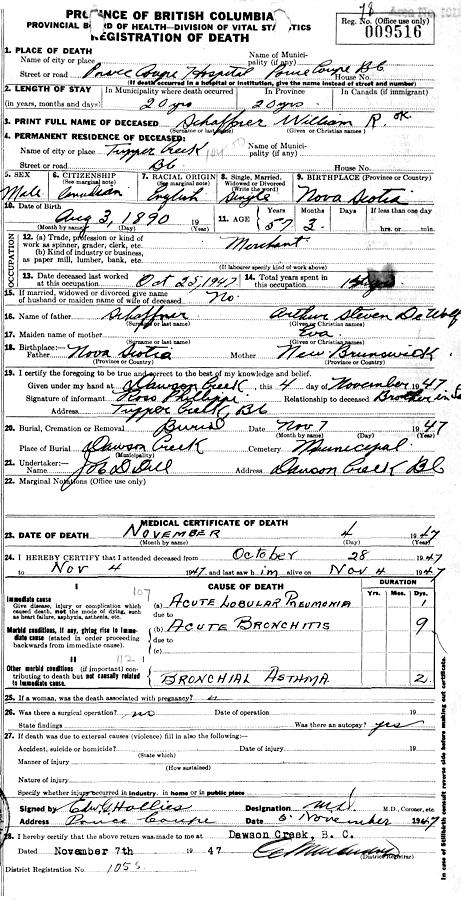 PROVINCE OF BRITISH COLUMBIA
PROVINCIAL BOARD OF HEALTH—DIVISION OF VITAL STATISTICS
REGISTRATION OF DEATH
78
Reg. No. (Office use only)
009516
1. PLACE OF DEATH
Name of city or place Name of Municipality (if any)
Street or road Pouce Coupe Hospital Pouce Coupe BC House No.
(If death occurred in a hospital or institution, give the name instead of street and number)
2. LENGTH OF STAY In Municipality where death occurred In Province In Canada (if immigrant)
(in years, months and days) 20 yrs 20 yrs
3. PRINT FULL NAME OF DECEASED Schaffner William R. OK
(Surname or last name) (Given or Christian names)
4. PERMANENT RESIDENCE OF DECEASED:
Name of city or place Tupper Creek Name of Municipality (if any)
Street or road BC House No.
5. SEX 6. CITIZENSHIP (See marginal note) 7. RACIAL ORIGIN (See marginal note) 8. Single, Married, Widowed or Divorced (Write the word) 9. BIRTHPLACE (Province or Country)
Male Canadian English Single Nova Scotia
10. Date of Birth Aug 3, 1890 19 11. AGE Years Months Days If less than one day
(Month by name) (Day) (Year) 57 3 hrs. or min.
OCCUPATION
12. (a) Trade, profession or kind of work as spinner, grader, clerk, etc.
(b) Kind of industry or business, as paper mill, lumber, bank, etc. Merchant
(If labourer specify kind of work above)
13. Date deceased last worked at this occupation Oct 25, 1947 14. Total years spent in this occupation
15. If married, widowed or divorced give name of husband or maiden name of wife of deceased No.
16. Name of father Schaffner Arthur Steven DeWolf
(Surname or last name) (Given or Christian names)
17. Maiden name of mother Eva
(Surname or last name) (Given or Christian names)
18. Birthplace:— Father Nova Scotia Mother New Brunswick
(Province or Country) (Province or Country)
19. I certify the foregoing to be true and correct to the best of my knowledge and belief.
Given under my hand at Dawson Creek, this 4 day of November 1947
Signature of informant Ross Phillippi Relationship to deceased Brother in
Address Tupper Creek, BC
20. Burial, Cremation or Removal Burial Date Nov 7 1947
(Month by name) (Day) (Year)
Place of Burial Dawson Creek Cemetery Municipal
(Municipality)
21. Undertaker:— Name Address Dawson Creek BC
22. Marginal Notations (Office use only)
MEDICAL CERTIFICATE OF DEATH
23. DATE OF DEATH NOVEMBER 4 1947
(Month by name) (Day) (Year)
24. I HEREBY CERTIFY that I attended deceased from October 28 1947
to Nov 4 1947, and last saw him alive on Nov 4 1947
107
I CAUSE OF DEATH DURATION
Yrs. Mos. Dys.
Immediate cause
Give disease, injury or complication which caused death, not the mode of dying, such as heart failure, asphyxia, asthenia, etc.
(a) ACUTE LOBULAR PNEUMONIA 1
due to
Morbid conditions, if any, giving rise to immediate cause (stated in order proceeding backwards from immediate cause).
(b) ACUTE BRONCHITIS 9
due to
(c)
II 112
Other morbid conditions (if important) contributing to death but not causally related to immediate cause.
BRONCHIAL ASTHMA 2
25. If a woman, was the death associated with pregnancy?
26. Was there a surgical operation? no Date of operation 19
State findings Was there an autopsy? yes
27. If death was due to external causes (violence) fill in also the following:—
Accident, suicide or homicide? Date of injury 19
(State which)
Manner of injury
(How sustained)
Nature of injury
Specify whether injury occurred in industry, in home or in public place
Signed by Edw. G. Hollies Designation M.D. M.D., Coroner, etc.
Address Pouce Coupe Date 5 November 1947
28. I hereby certify that the above return was made to me at Dawson Creek, B. C.
Dated November 7th 1947
(District Registrar)
District Registration No. 1055
In case of Stillbirth consult reverse side before making out certificate.